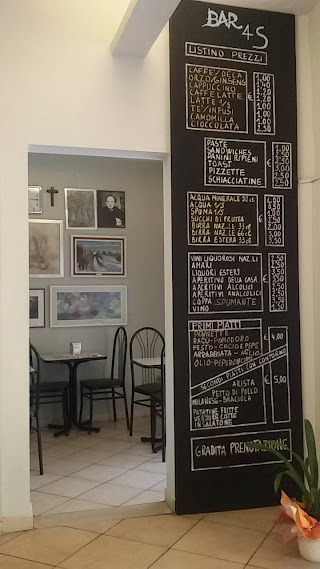 BAR 4 S
LISTINO PREZZI
CAFFE/DECA 1,00
ORZO/GINSENG
CAPPUCCINO
CAFFELATTE
LATTE
TE'/INFUSI
CAMOMILLA
CIOCCOLATA 2,50
PASTE
SANDWICHES
PANINI RIPIENI
TOAST
PIZZETTE
SCHIACCIATINE
€
ACQUA MINERALE 50 cl
ACQUA 1/3
SPUMA 1/3
SUCCHI DI FRUTTA
BIRRA NAZ.LE 33 cl
BIRRA NAZ.LE 66 cl
BIRRA ESTERA 33 cl
€
VINI LIQUOROSI NAZ.LI
AMARI
LIQUORI ESTERI
APERITIVO DELLA CASA
APERITIVI ALCOLICI
APERITIVI ANALCOLICI
COPPA SPUMANTE
VINO
€
PRIMI PIATTI
PENNETTE
RAGU-POMODORO
PESTO-CACIO E PEPE
ARRABBIATA-AGLIO
OLIO-PEPERONCINO
€ 4,00
SECONDI PIATTI CON CONTORNO
ARISTA
PETTO DI POLLO
MILANESE-BRACIOLA
€ 5,00
PATATINE FRITTE
VERDURE COTTE
INSALATONE
GRADITA PRENOTAZIONE